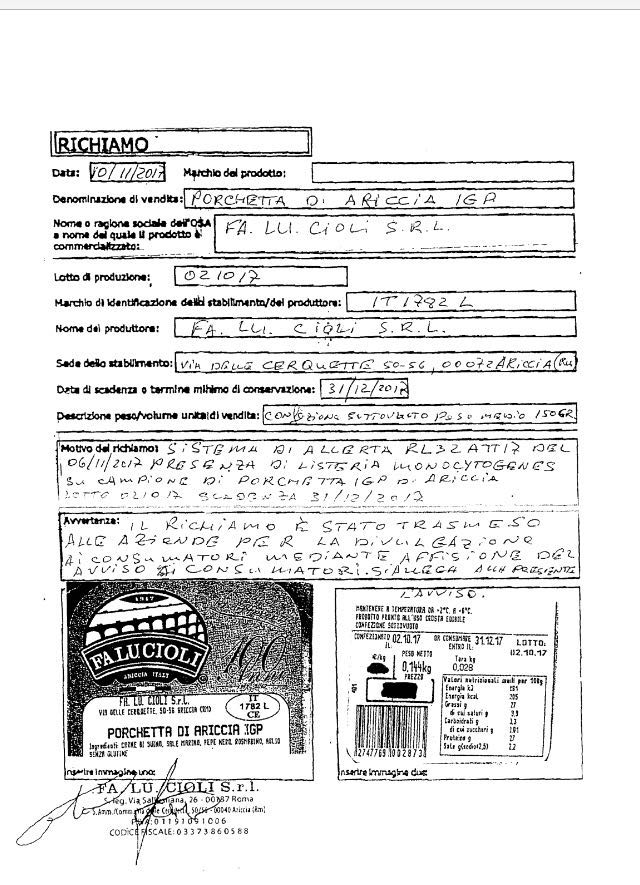 RICHIAMO
Data: 10/11/2017 Marchio del prodotto:
Denominazione di vendita: PORCHETTA DI ARICCIA IGP
Nome o ragione sociale dell'OSA
a nome del quale il prodotto è
commercializzato:
FA. LU. CIOLI S.R.L.
Lotto di produzione: 021017
Marchio di identificazione dello stabilimento/del produttore: IT1782 L
Nome del produttore: FA. LU. CIOLI S.R.L.
Sede dello stabilimento: VIA DELLE CERQUETTE 50-56, 00072 ARICCIA (RM)
Data di scadenza o termine minimo di conservazione: 31/12/2017
Descrizione peso/volume unità di vendita: CONFEZIONE SOTTOVUOTO PESO MEDIO 150GR
Motivo del richiamo: SISTEMA DI ALLERTA RL32 ATT17 DEL
06/11/2017 PRESENZA DI LISTERIA MONOCYTOGENES
SU CAMPIONE DI PORCHETTA IGP DI ARICCIA
LOTTO 021017 SCADENZA 31/12/2017
Avvertenze: IL RICHIAMO È STATO TRASMESSO
ALLE AZIENDE PER LA DIVULGAZIONE
AI CONSUMATORI MEDIANTE AFFISIONE DEL
AVVISO AI CONSUMATORI. SI ALLEGA ALLA PRESENTE
L'AVVISO.
1917
FALUCIOLI
ARICCIA ITALY
FA. LU. CIOLI S.r.L.
VIA DELLE CERQUETTE, 50-56 ARICCIA (RM)
IT
1782 L
CE
PORCHETTA DI ARICCIA IGP
Ingredienti: CARNE DI SUINO, SALE MARINO, PEPE NERO, ROSMARINO, AGLIO
SENZA GLUTINE
MANTENERE A TEMPERATURA DA +2°C. A +6°C.
PRODOTTO PRONTO ALL'USO CROSTA EDIBILE
CONFEZIONE SOTTOVUOTO
CONFEZIONATO IL: 02.10.17 DA CONSUMARE ENTRO IL: 31.12.17 LOTTO: 02.10.17
€/kg PESO NETTO 0,144kg Tara kg 0,028
PREZZO
Valori nutrizionali medi per 100g
Energia kJ
Energia kcal
Grassi g 27
di cui saturi g 9.9
Carboidrati g
di cui zuccheri g
Proteine g 27
Sale g(sodio*2,5) 2.2
2747769 002873
Inserire immagine uno:
Inserire immagine due:
FA. LU. CIOLI S.r.l.
S. leg. Via Salboniana, 26 - 00187 Roma
S. Amm./Comm. Via delle Cerquette, 50/56 - 00040 Ariccia (Rm)
P. IVA: 01191091006
CODICE FISCALE: 03373860588